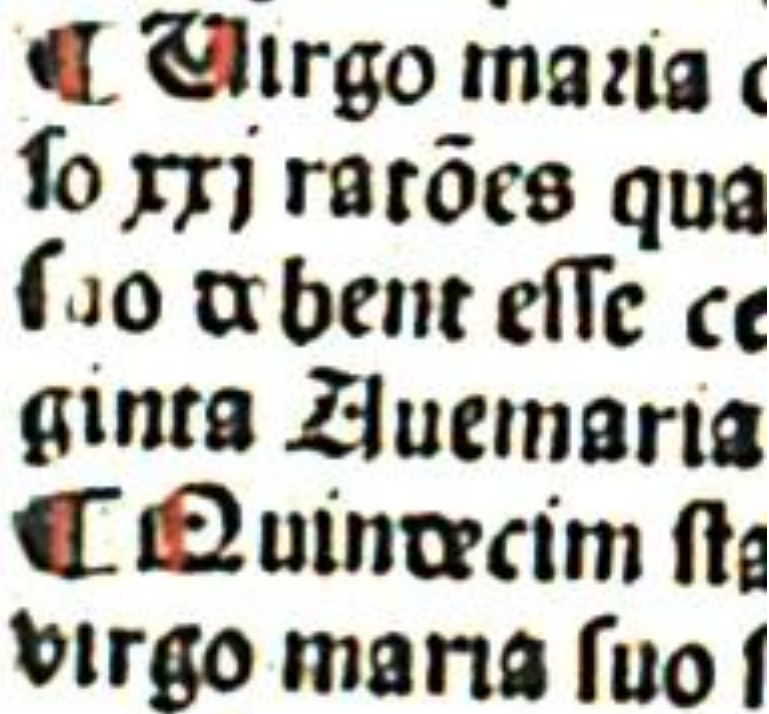 ¶ Virgo maria
ſo xxj ratōes qua
ſuo debent eſſe ce
ginta Auemaria
¶ Quindecim ſta
virgo maria ſuo